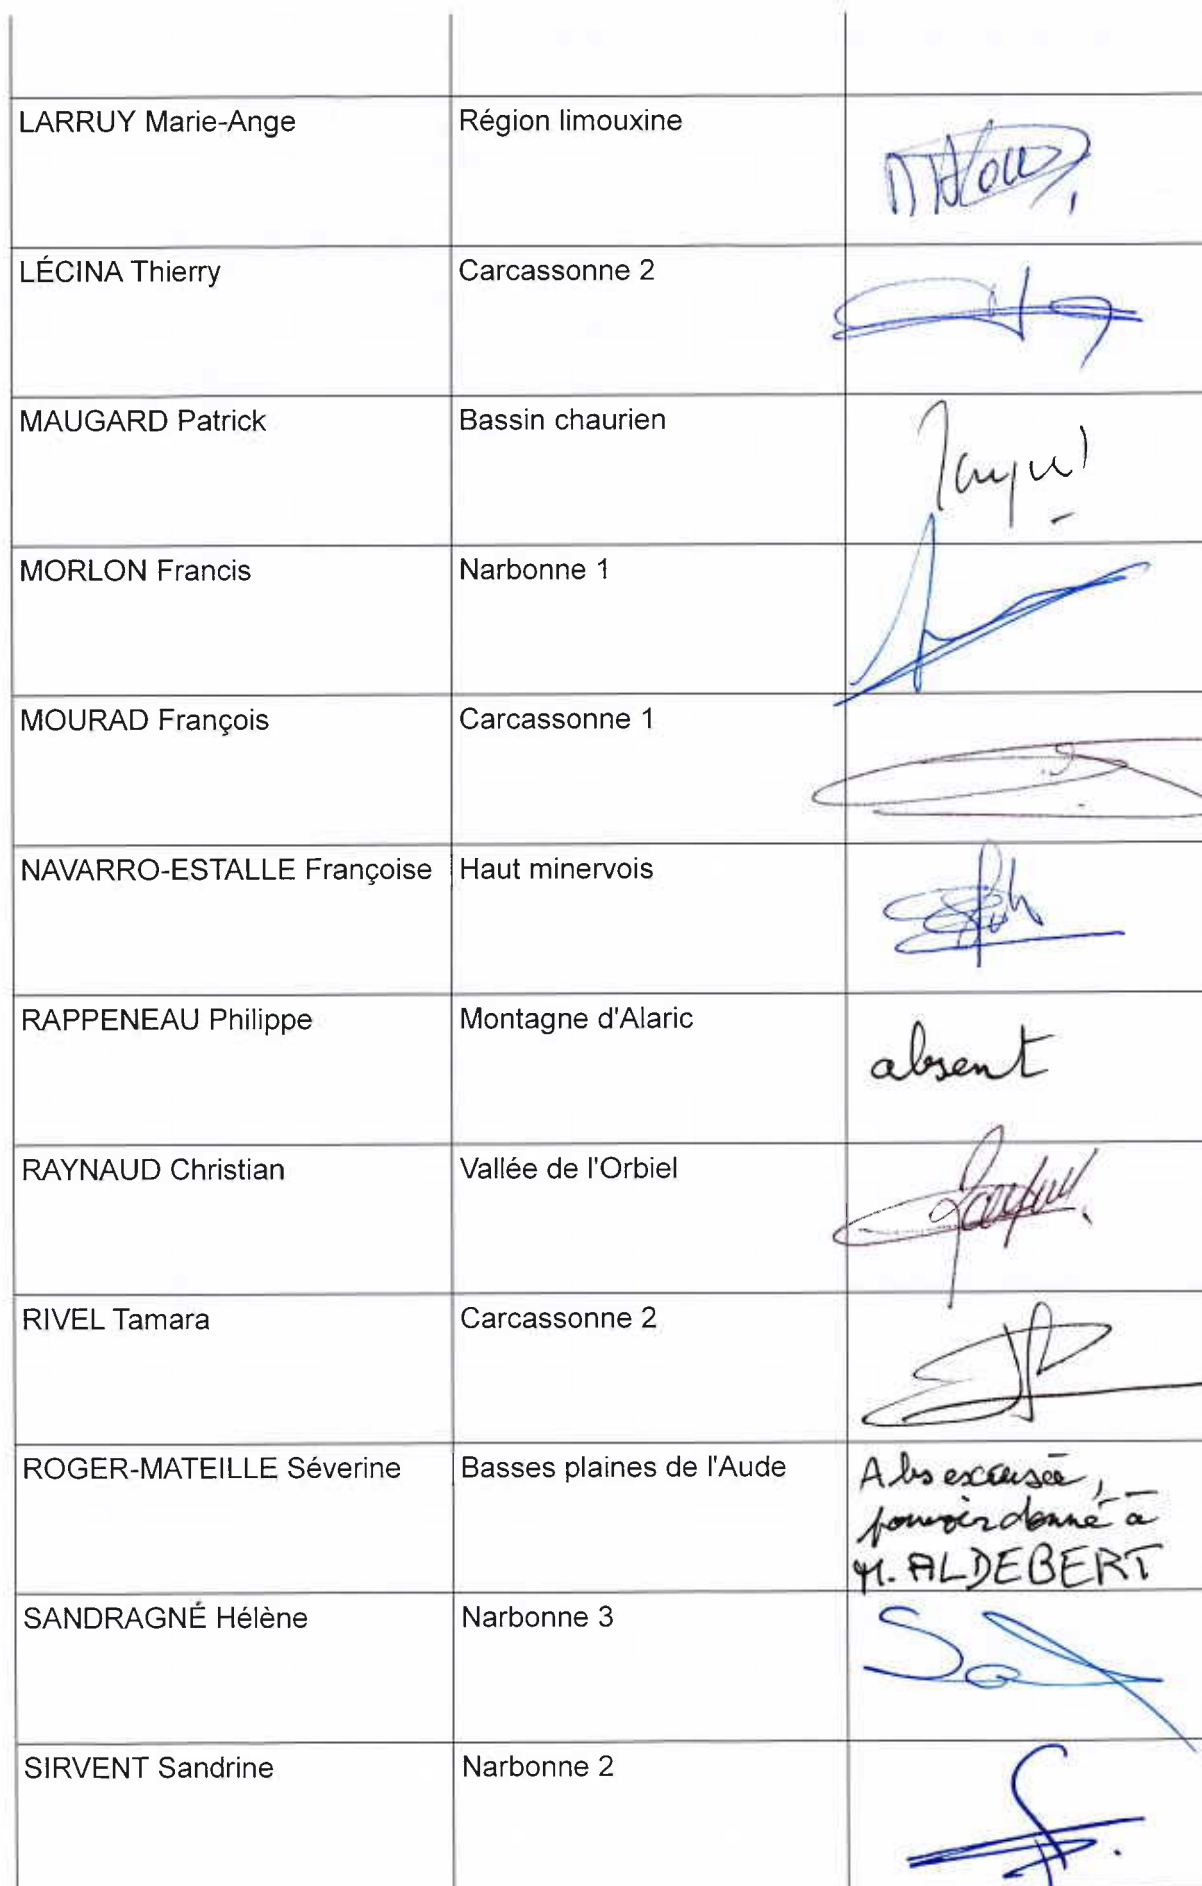 LARRUY Marie-Ange Région limouxine
LÉCINA Thierry Carcassonne 2
MAUGARD Patrick Bassin chaurien
MORLON Francis Narbonne 1
MOURAD François Carcassonne 1
NAVARRO-ESTALLE Françoise Haut minervois
RAPPENEAU Philippe Montagne d'Alaric absent
RAYNAUD Christian Vallée de l'Orbiel
RIVEL Tamara Carcassonne 2
ROGER-MATEILLE Séverine Basses plaines de l'Aude Abs excusée,
pouvoir donné à
M. ALDEBERT
SANDRAGNÉ Hélène Narbonne 3
SIRVENT Sandrine Narbonne 2